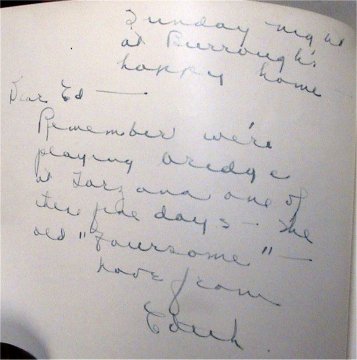 Sunday night
at Burrough's
happy home
Dear Ed —
Remember we're
playing bridge
at Tarzana one of
these fine days - The
old "Foursome" —
Love from
Edith.